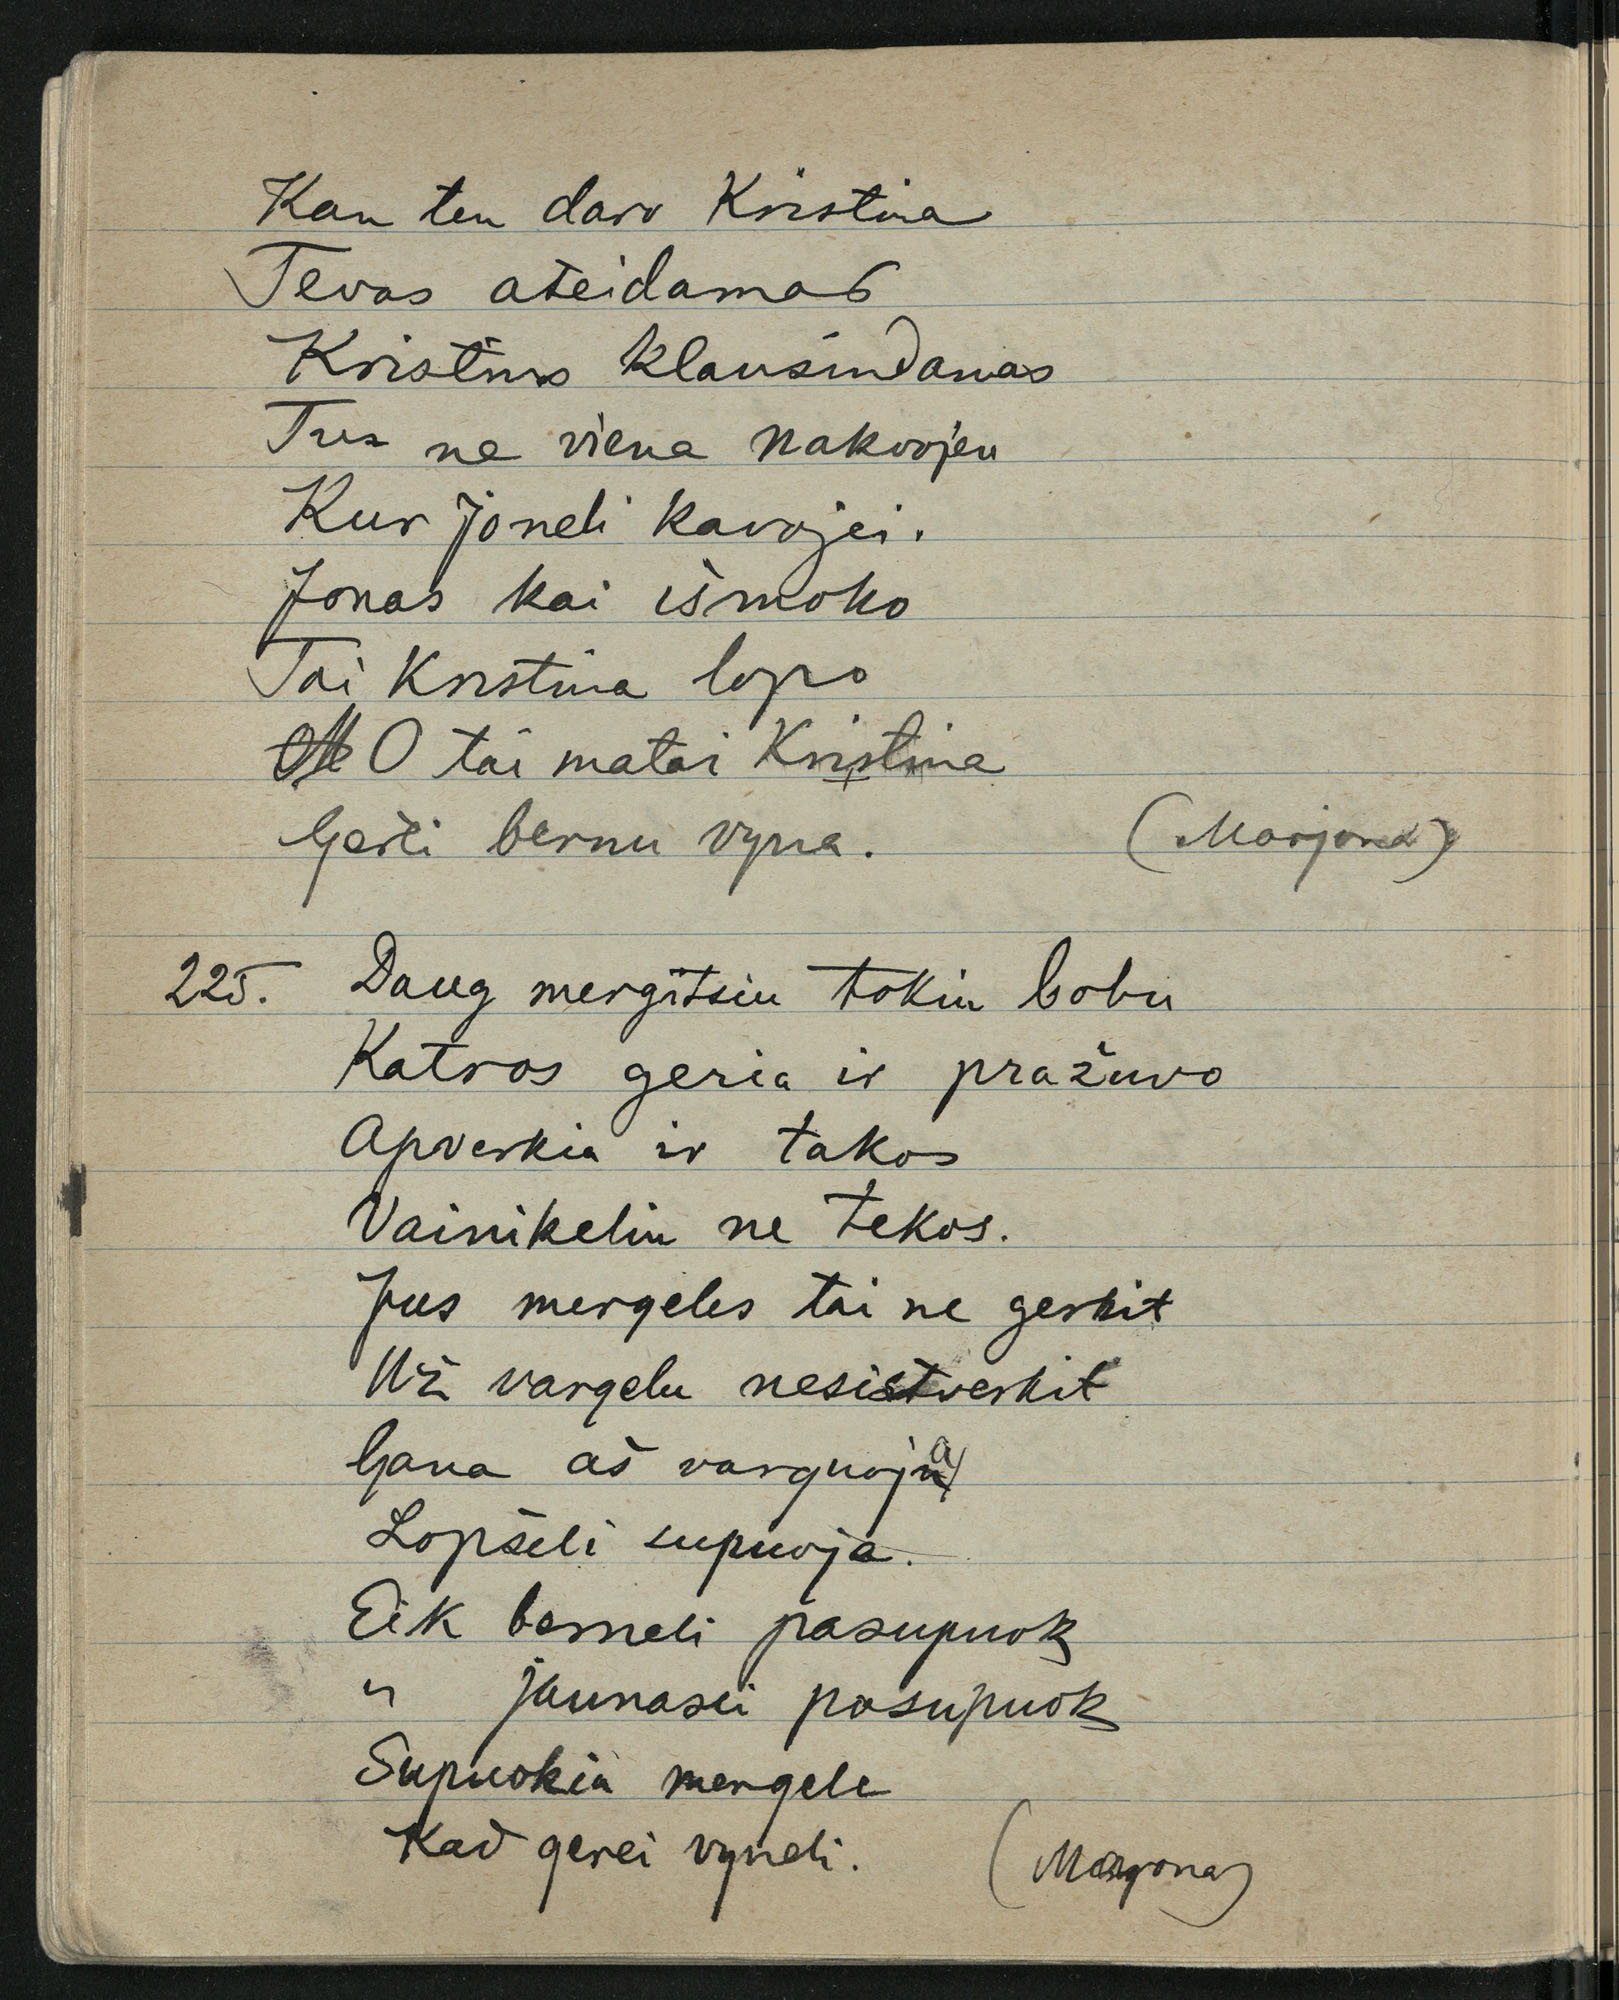 Kan ten daro Kristina
Tevas ateidamas
Kristinos klausindamas
Tu ne viena nakvojen
Kur Joneli kavojei.
Jonas kai išmoko
Tai Kristina lopo
O tai matai Kristina
Gerti bernu vyna. (Marjona)
225. Daug mergitsiu tokiu bobu
Katros geria ir pražuvo
Apverkia ir takos
Vainikeliu ne tekos.
Jus mergeles tai ne gerkit
Už vargelu nesistverkit
Gana aš varguoja
Lopšeli supuoja.
Eik berneli pasupuok
" jaunasei pasupuok
Supuokia mergele
Kad gerei vyneli. (Marjona)